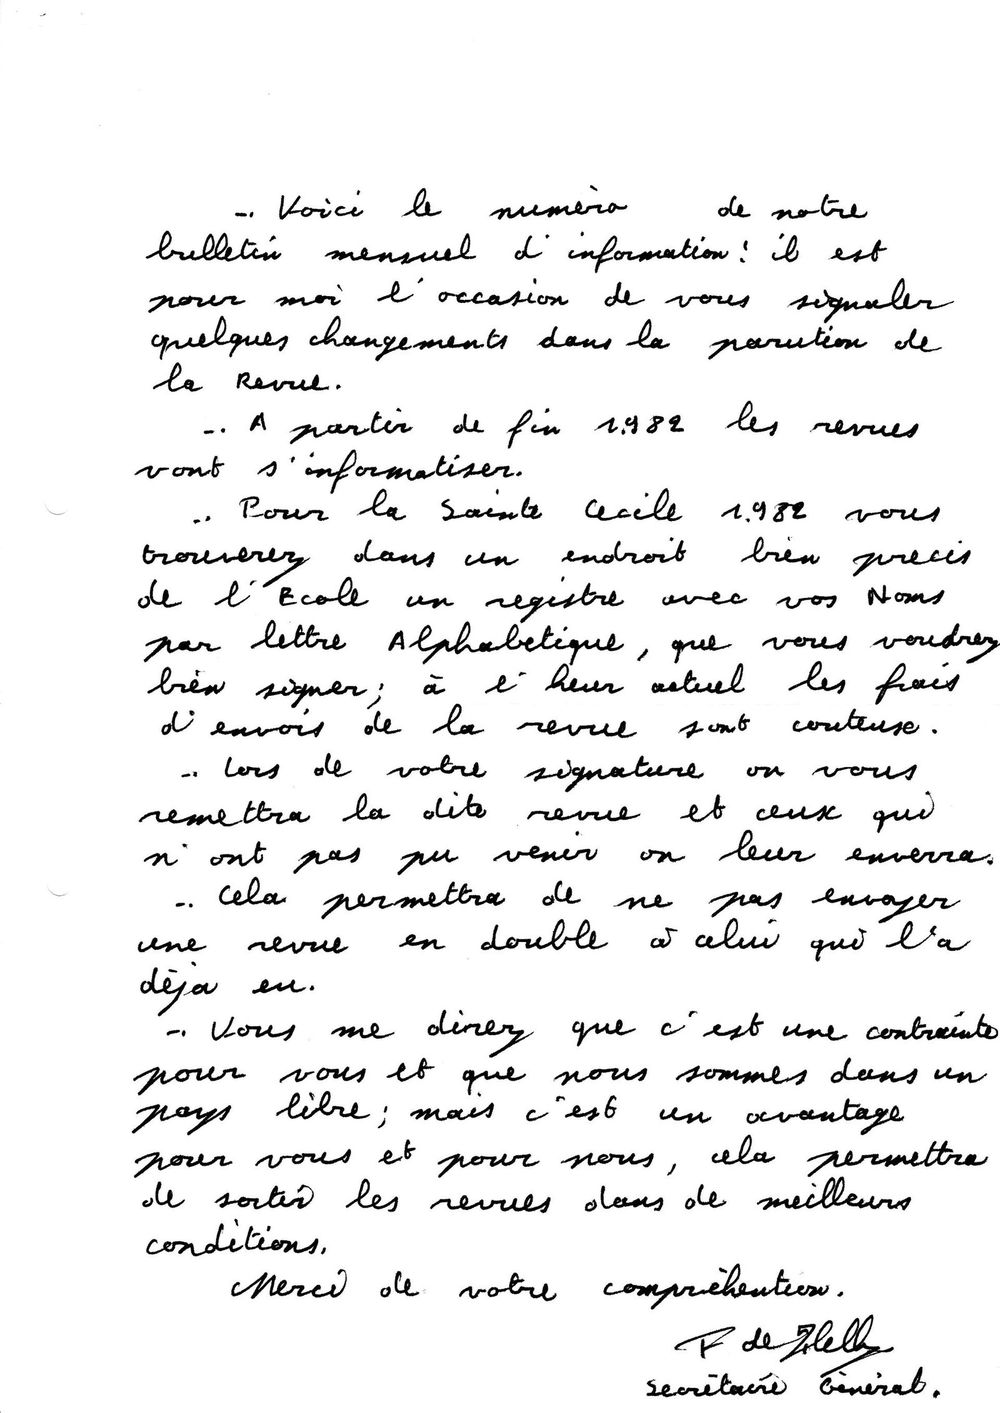 -. Voici le numéro de notre
bulletin mensuel d'information! il est
pour moi l'occasion de vous signaler
quelques changements dans la parution de
la Revue.
-. A partir de fin 1.982 les revues
vont s'informatiser.
-. Pour la Sainte Cecile 1.982 vous
trouverez dans un endroit bien precis
de l'Ecole un registre avec vos Noms
par lettre Alphabetique, que vous voudrez
bien signer; à l'heur actuel les frais
d'envois de la revue sont couteuse.
-. Lors de votre signature on vous
remettra la dite revue et ceux qui
n'ont pas pu venir on leur enverra.
-. Cela permettra de ne pas envoyer
une revue en double à celui qui l'a
déja eu.
-. Vous me direz que c'est une contrainte
pour vous et que nous sommes dans un
pays libre; mais c'est un avantage
pour vous et pour nous, cela permettra
de sortir les revues dans de meilleurs
conditions.
Merci de votre compréhention.
de
Secrétaire Général.